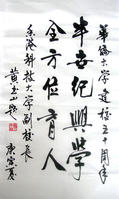 華僑大學建校五十周年
半世紀興學
全方位育人
香港科技大學副校長
黃玉山題
庚寅夏